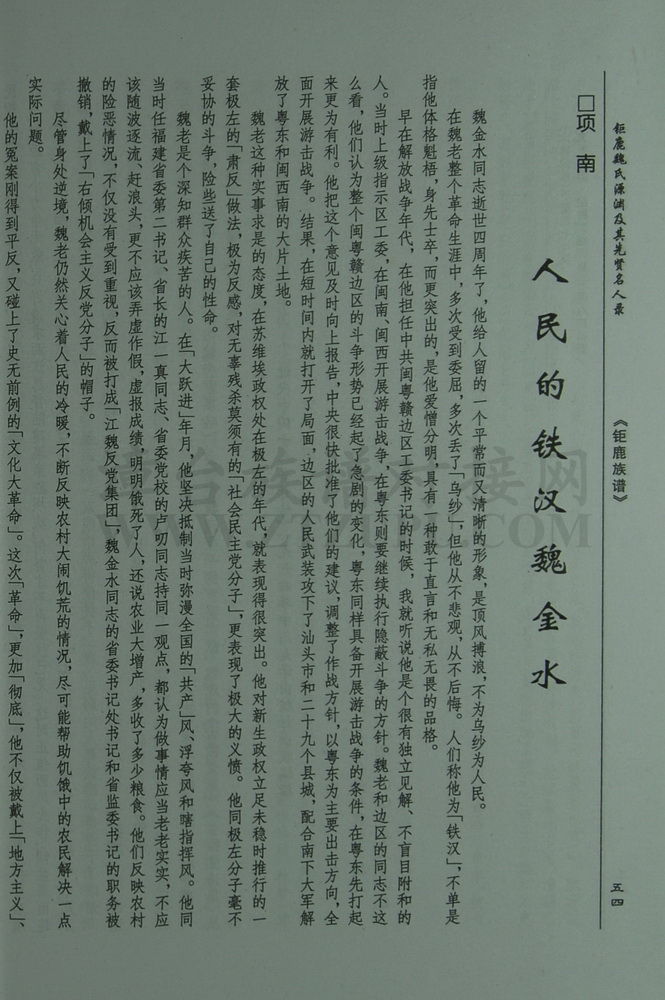 钜鹿魏氏源渊及其先贤名人录
《钜鹿族谱》
五四
人民的铁汉魏金水
□项 南
魏金水同志逝世四周年了，他给人留的一个平常而又清晰的形象，是顶风搏浪，不为乌纱为人民。
在魏老整个革命生涯中，多次受到委屈，多次丢了「乌纱」，但他从不悲观，从不后悔。人们称他为「铁汉」，不单是
指他体格魁梧，身先士卒，而更突出的，是他爱憎分明，具有一种敢于直言和无私无畏的品格。
早在解放战争年代，在他担任中共闽粤赣边区工委书记的时候，我就听说他是个很有独立见解、不盲目附和的
人。当时上级指示区工委，在闽南、闽西开展游击战争，在粤东则要继续执行隐蔽斗争的方针。魏老和边区的同志不这
么看，他们认为整个闽粤赣边区的斗争形势已经起了急剧的变化，粤东同样具备开展游击战争的条件，在粤东先打起
来更为有利。他把这个意见及时向上报告，中央很快批准了他们的建议，调整了作战方针，以粤东为主要出击方向，全
面开展游击战争。结果，在短时间内就打开了局面，边区的人民武装攻下了汕头市和二十九个县城，配合南下大军解
放了粤东和闽西南的大片土地。
魏老这种实事求是的态度，在苏维埃政权处在极左的年代，就表现得很突出。他对新生政权立足未稳时推行的一
套极左的「肃反」做法，极为反感，对无辜残杀莫须有的「社会民主党分子」，更表现了极大的义愤。他同极左分子毫不
妥协的斗争，险些送了自己的性命。
魏老是个深知群众疾苦的人。在「大跃进」年月，他坚决抵制当时弥漫全国的「共产」风、浮夸风和瞎指挥风。他同
当时任福建省委第二书记、省长的江一真同志、省委党校的卢叨同志持同一观点，都认为做事情应当老老实实，不应
该随波逐流，赶浪头，更不应该弄虚作假，虚报成绩，明明饿死了人，还说农业大增产，多收了多少粮食。他们反映农村
的险恶情况，不仅没有受到重视，反而被打成「江魏反党集团」，魏金水同志的省委书记处书记和省监委书记的职务被
撤销，戴上了「右倾机会主义反党分子」的帽子。
尽管身处逆境，魏老仍然关心着人民的冷暖，不断反映农村大闹饥荒的情况，尽可能帮助饥饿中的农民解决一点
实际问题。
他的冤案刚得到平反，又碰上了史无前例的「文化大革命」。这次「革命」，更加「彻底」，他不仅被戴上「地方主义」、